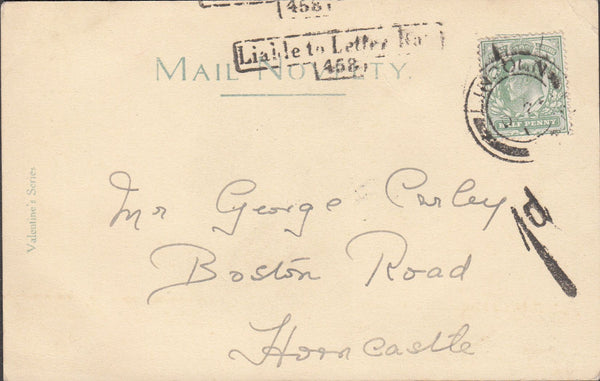 458
Liable to Letter Rate
458
MAIL NOVELTY.
LINCOLN
HALF PENNY
Valentine's Series
Mr George Carley
Boston Road
Horncastle
1d